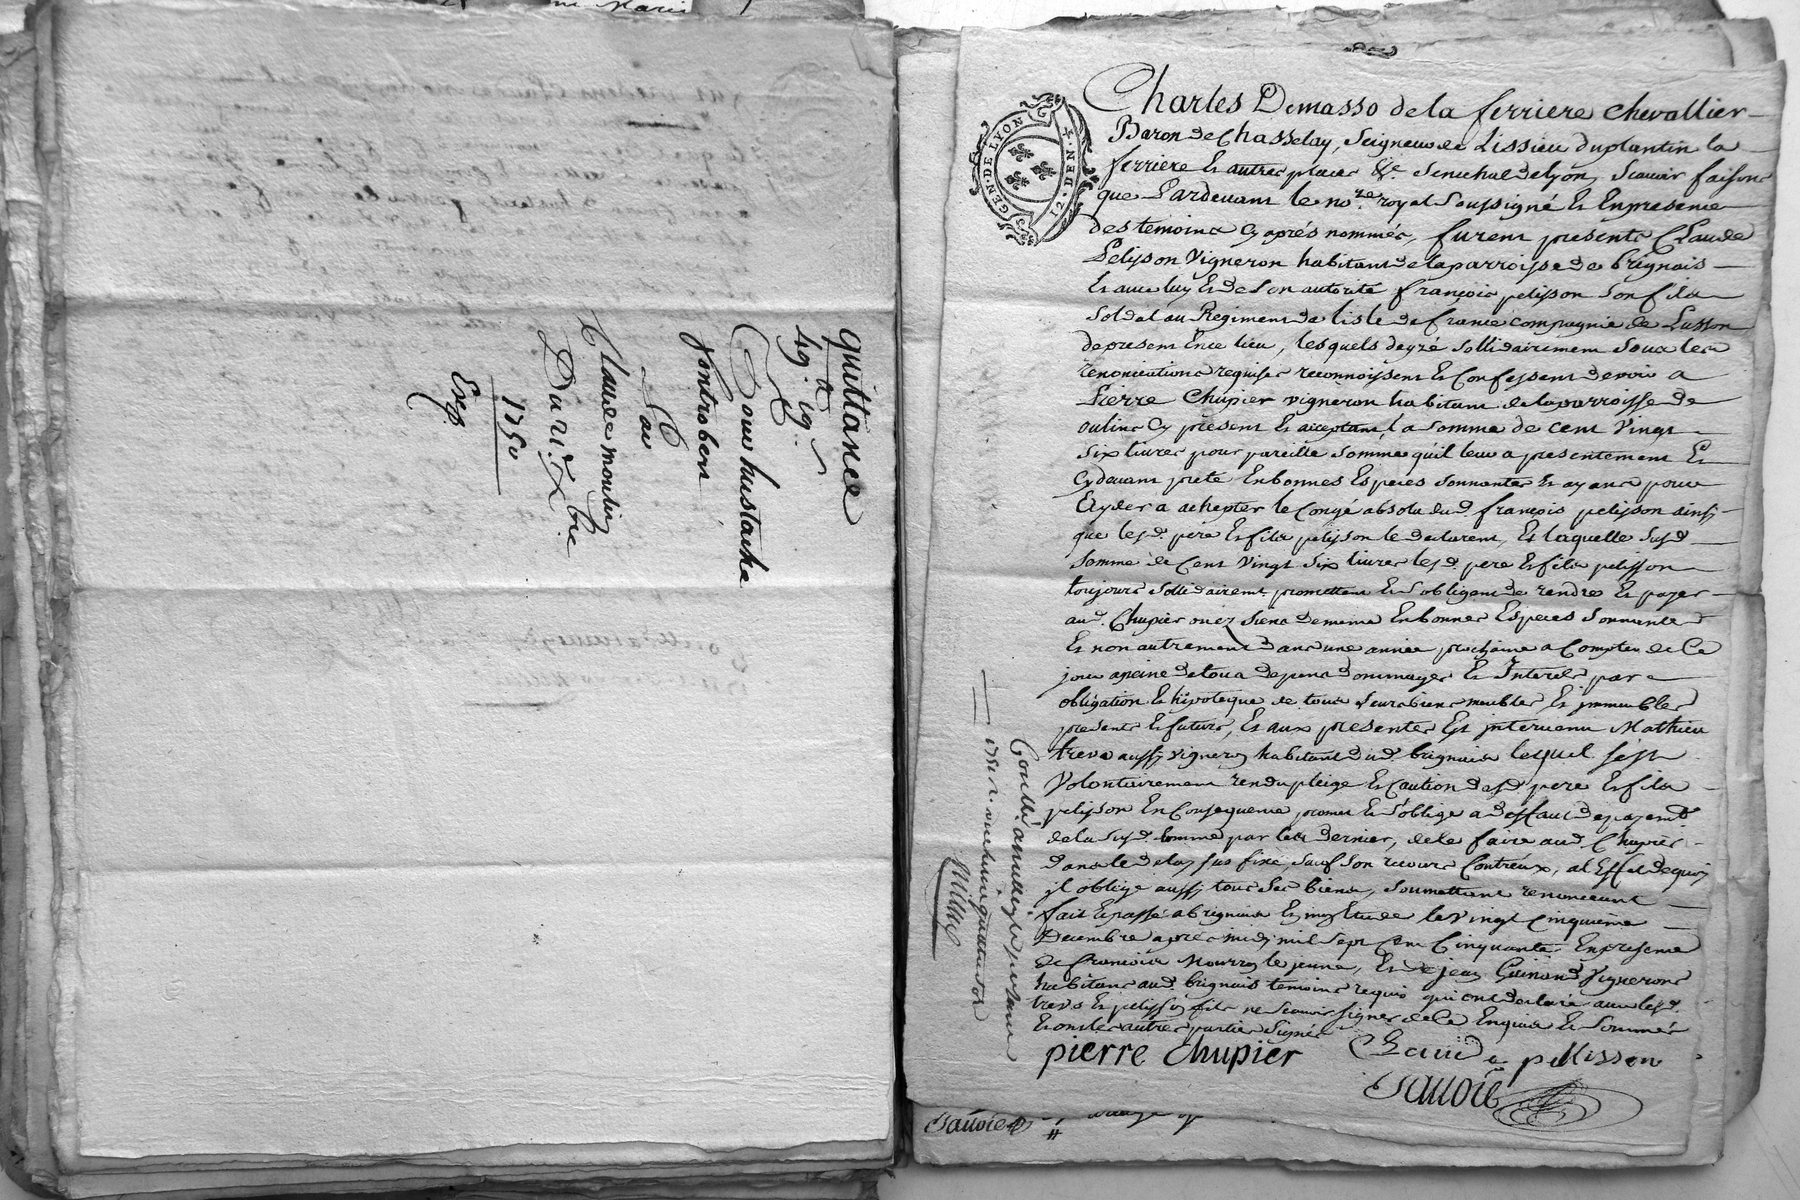 quittance
de
49. 19.
Pour Eustache
Jontrobert
Par
Claude moulin
1750
Exp.
GEN. DE LYON
12. DEN
Charles Demasso de la ferriere chevallier
Baron de Chasselay, Seigneur de Lissieu Duplantin la
ferriere Et autres places &c. Senechal de lyon, scavoir faisons
que Pardevant le no.re royal Soussigné Et Enpresence
des temoins Cy aprés nommés, furent presents Claude
Pelisson Vigneron habitant de la parroisse de brignais
Et avec luy Et de Son autorité françois pelisson Son fils
Soldat au Regiment de lisle de france compagnie de
depresent Ence lieu, lesquels deyzé Sollidairement Sous les
renonciations requises reconnoissent Et Confessent devoir a
Pierre Chupier vigneron habitant de la parroisse de
oulins Cy present Et acceptant, la Somme de Cent Vingt
Six livres pour pareille Somme quil leur a presentement Et
Cydevant prêté Enbonnes Especes Sonnantes Et ayant pour
Eyder a achepter le Congé absolu dud. françois pelisson ainsy
que lesd. pere Et fils pelisson le declarent, Et laquelle susd.
Somme de Cent Vingt Six livres lesd. pere Et fils pelisson
toujours Sollidairemt. promettent Et Sobligent de rendre Et payer
aud. Chupier ou ez Siens Demema Enbonnes Especes Sonnantes
Et non autrement Dans une année prochaine a Compter de Ce
jour apeine de tous depens Dommages Et Interets par
obligation Et hipoteque de tous Leurs biens meubles Et jmmeubles
presents Et futurs, Et aux presentes Est jntervenu Mathieu
treve aussy vigneron habitant dud. brignais lequel Sest
Volontairement rendu pleige Et Caution desd. pere Et fils
pelisson En Consequence promet Et S'oblige a deffaut de payemt.
de la susd. Somme par les dernier, de le faire aud. Chupier
dans le delay sus fixe sauf Son recours Contreux, a l'Effet dequoy
jl oblige aussy tous Ses biens, soumettant renonceant
fait Et passé a brignais Et mon Etude le Vingt Cinquieme
Decembre aprés midy mil Sept Cent Cinquante, Enpresence
de françois Mourron le jeune, Et de jean Guinand Vignerons
habitans aud. brignais temoins requis qui ont declaré avec lesd.
treve Et pelisson fils ne Scavoir signer de Ce Enquis Et Sommés
Et ont les autres parties Signé
pierre Chupier
Claude pellisson
Savoie
Savoie